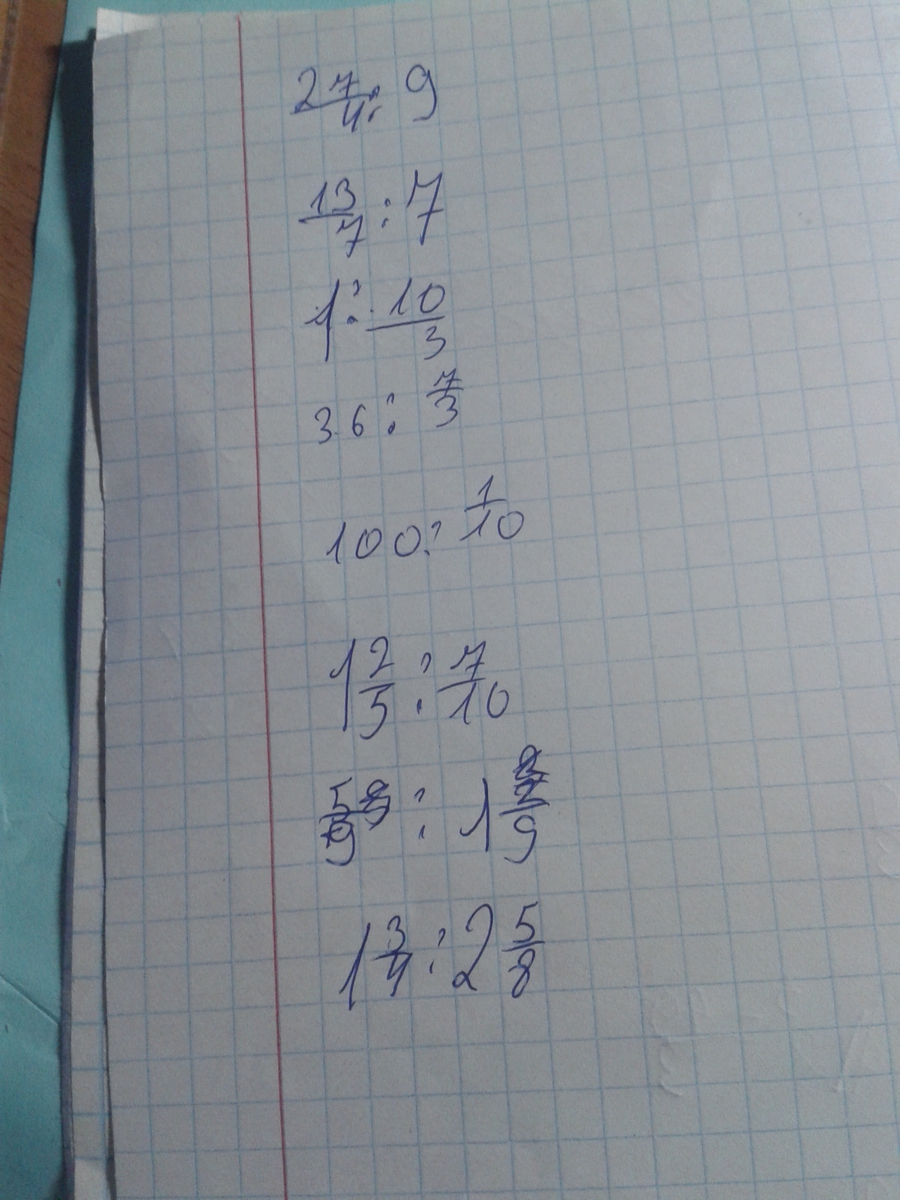 27/4 : 9
13/7 : 7
1 : 10/3
36 : 7/3
100 : 1/10
1 2/5 : 7/10
5/9 : 1 2/9
1 3/4 : 2 5/8